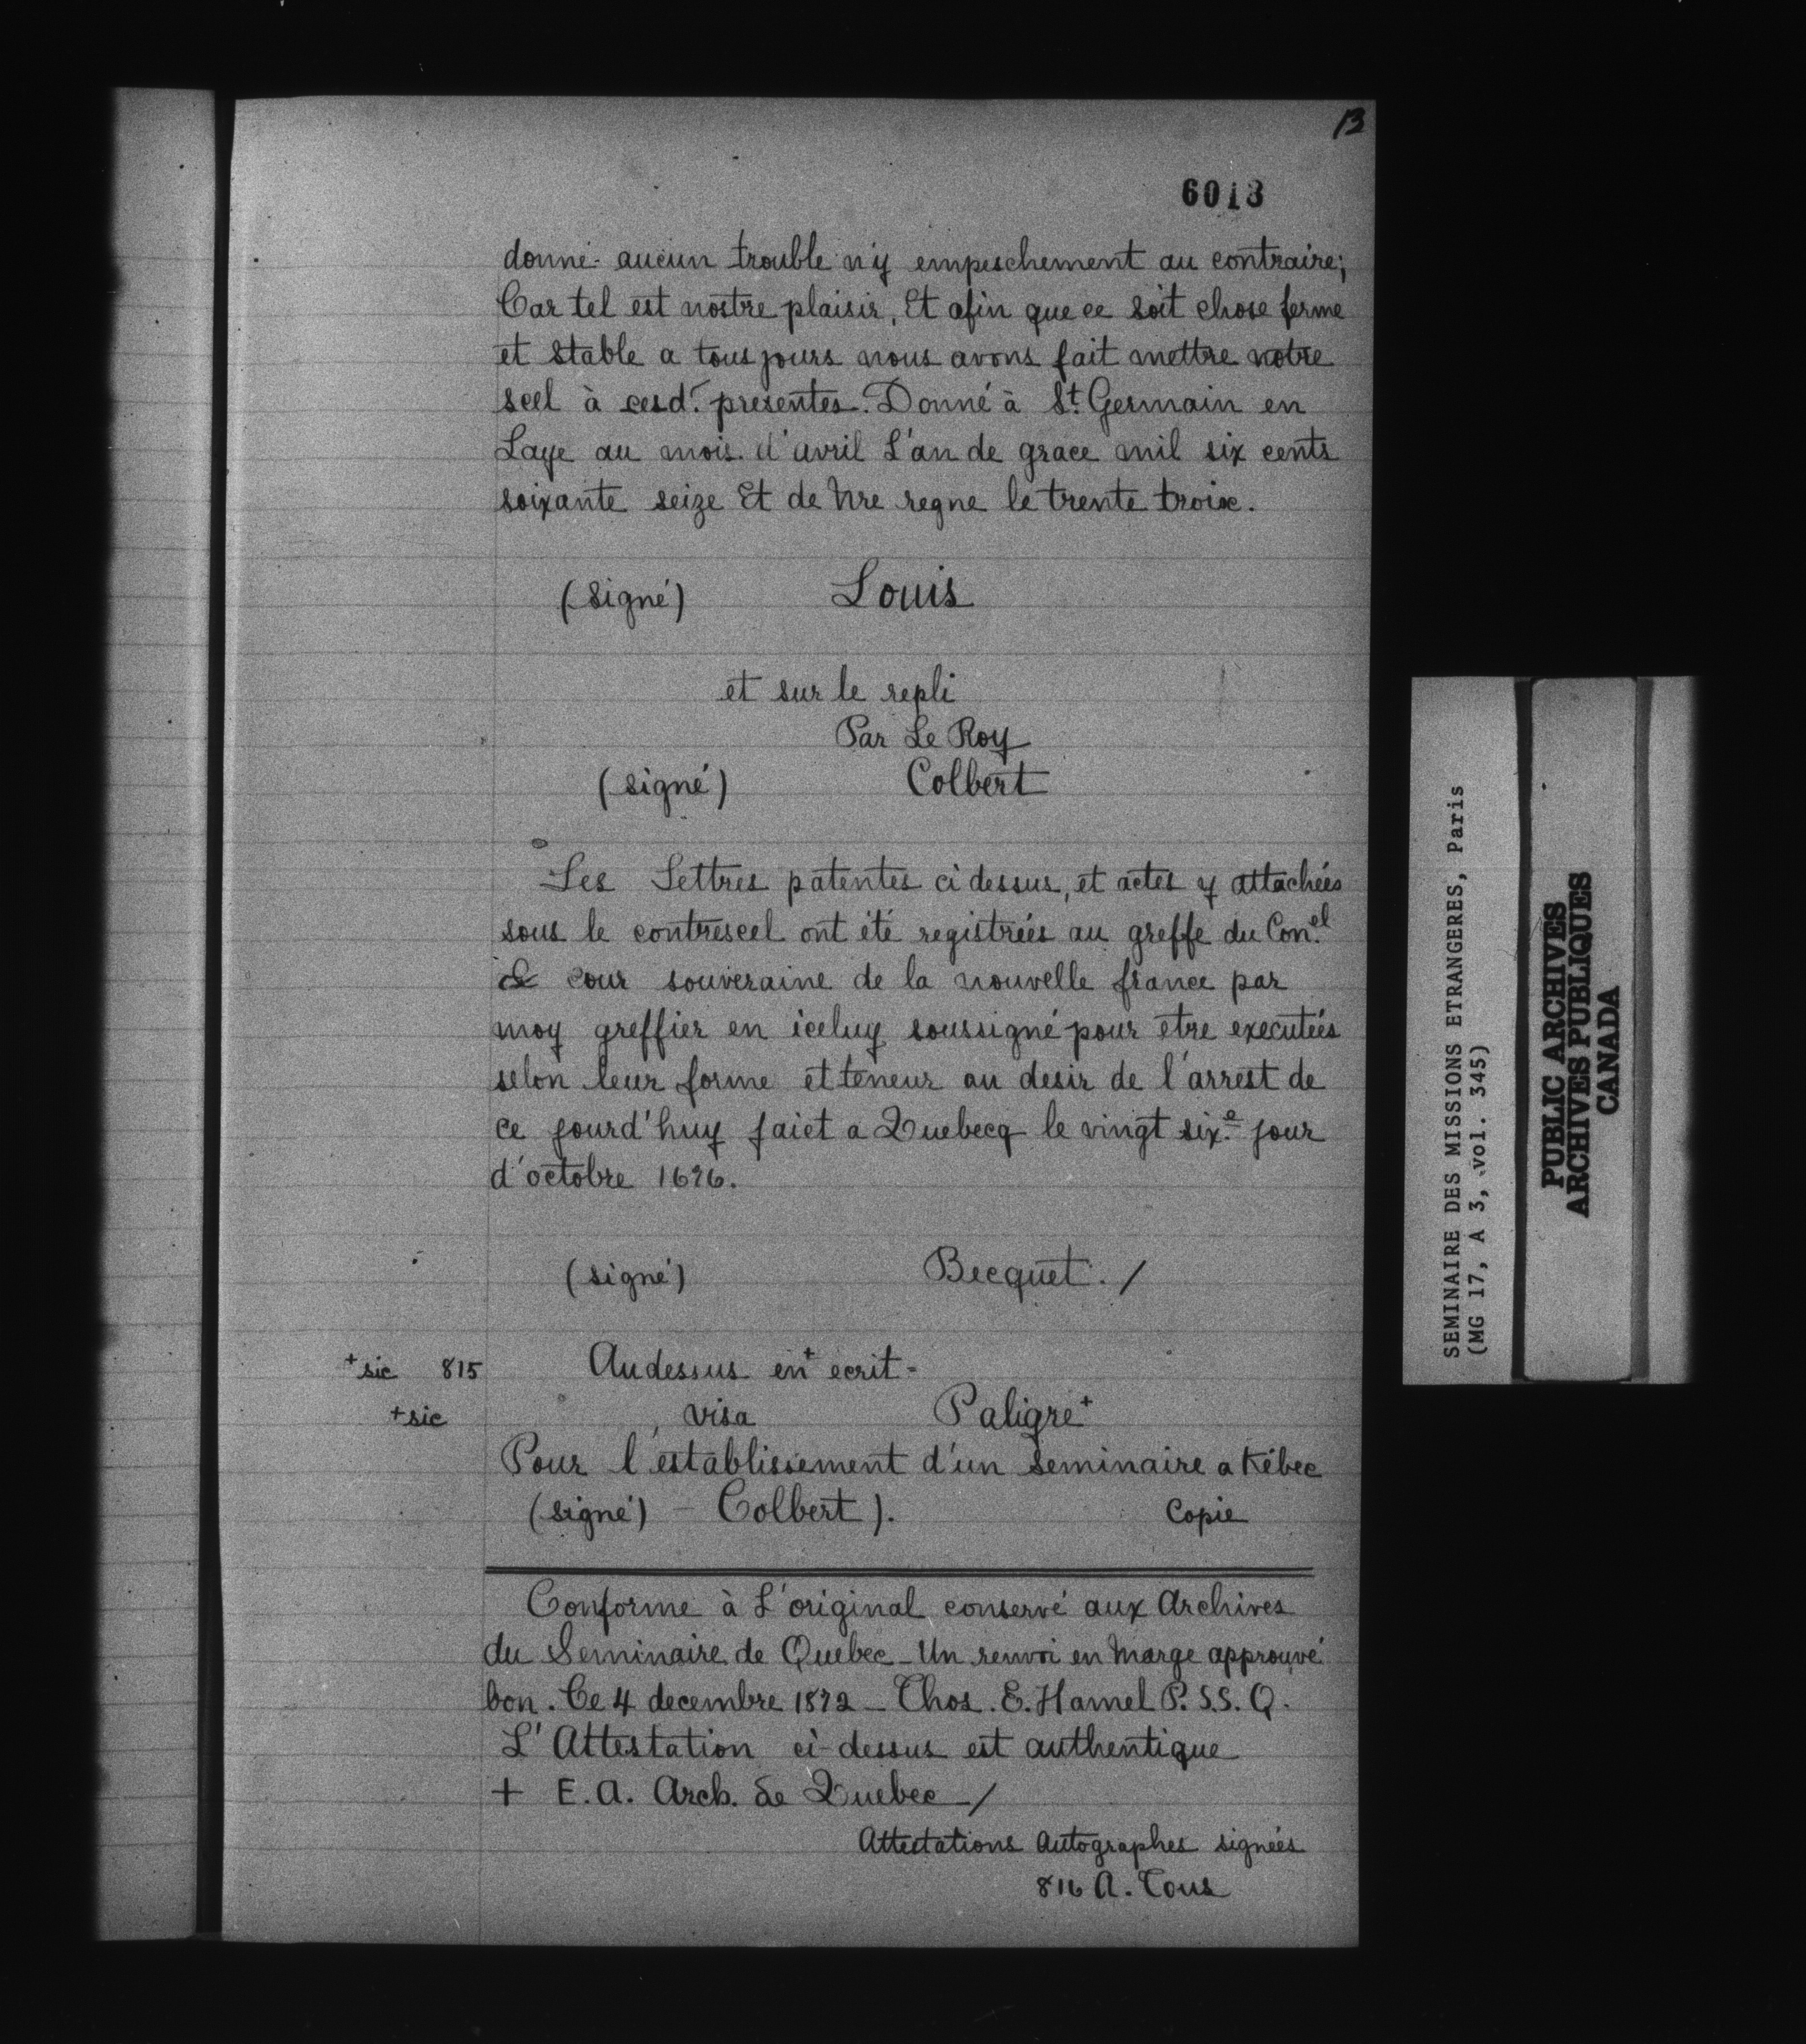 13
6013
donné aucun trouble n'y empeschement au contraire;
Car tel est nostre plaisir, Et afin que ce soit chose ferme
et stable a tousjours nous avons fait mettre notre
scel à cesd. presentes. Donné à St. Germain en
Laye au mois d'avril L'an de grace mil six cents
soixante seize Et de Nre regne le trente troixe.
(signé) Louis
et sur le repli
Par Le Roy
(signé) Colbert
Les Lettres patentes ci dessus, et actes y attachées
sous le contrescel ont été registrées au greffe du Con.el
& cour souveraine de la nouvelle france par
moy greffier en iceluy soussigné pour etre executées
selon leur forme et teneur au desir de l'arrest de
ce jourd'huy faict a Quebecq le vingt six.e jour
d'octobre 1676.
(signé) Becquet. /
+ sic 815 Au dessus en+ ecrit =
+ sic visa Paligre+
Pour l'establissement d'un seminaire a Kébec
(signé) - Colbert). Copie
Conforme à L'original conservé aux Archives
du Seminaire de Quebec - Un renvoi en Marge approuvé
bon. Ce 4 decembre 1872 - Thos. E. Hamel P. S.S. Q.
L'Attestation ci-dessus est authentique
+ E. A. Arch. de Quebec /
Attestations Autographes signées
816 A. Tous
SEMINAIRE DES MISSIONS ETRANGERES, Paris
(MG 17, A 3, vol. 345)
PUBLIC ARCHIVES
ARCHIVES PUBLIQUES
CANADA